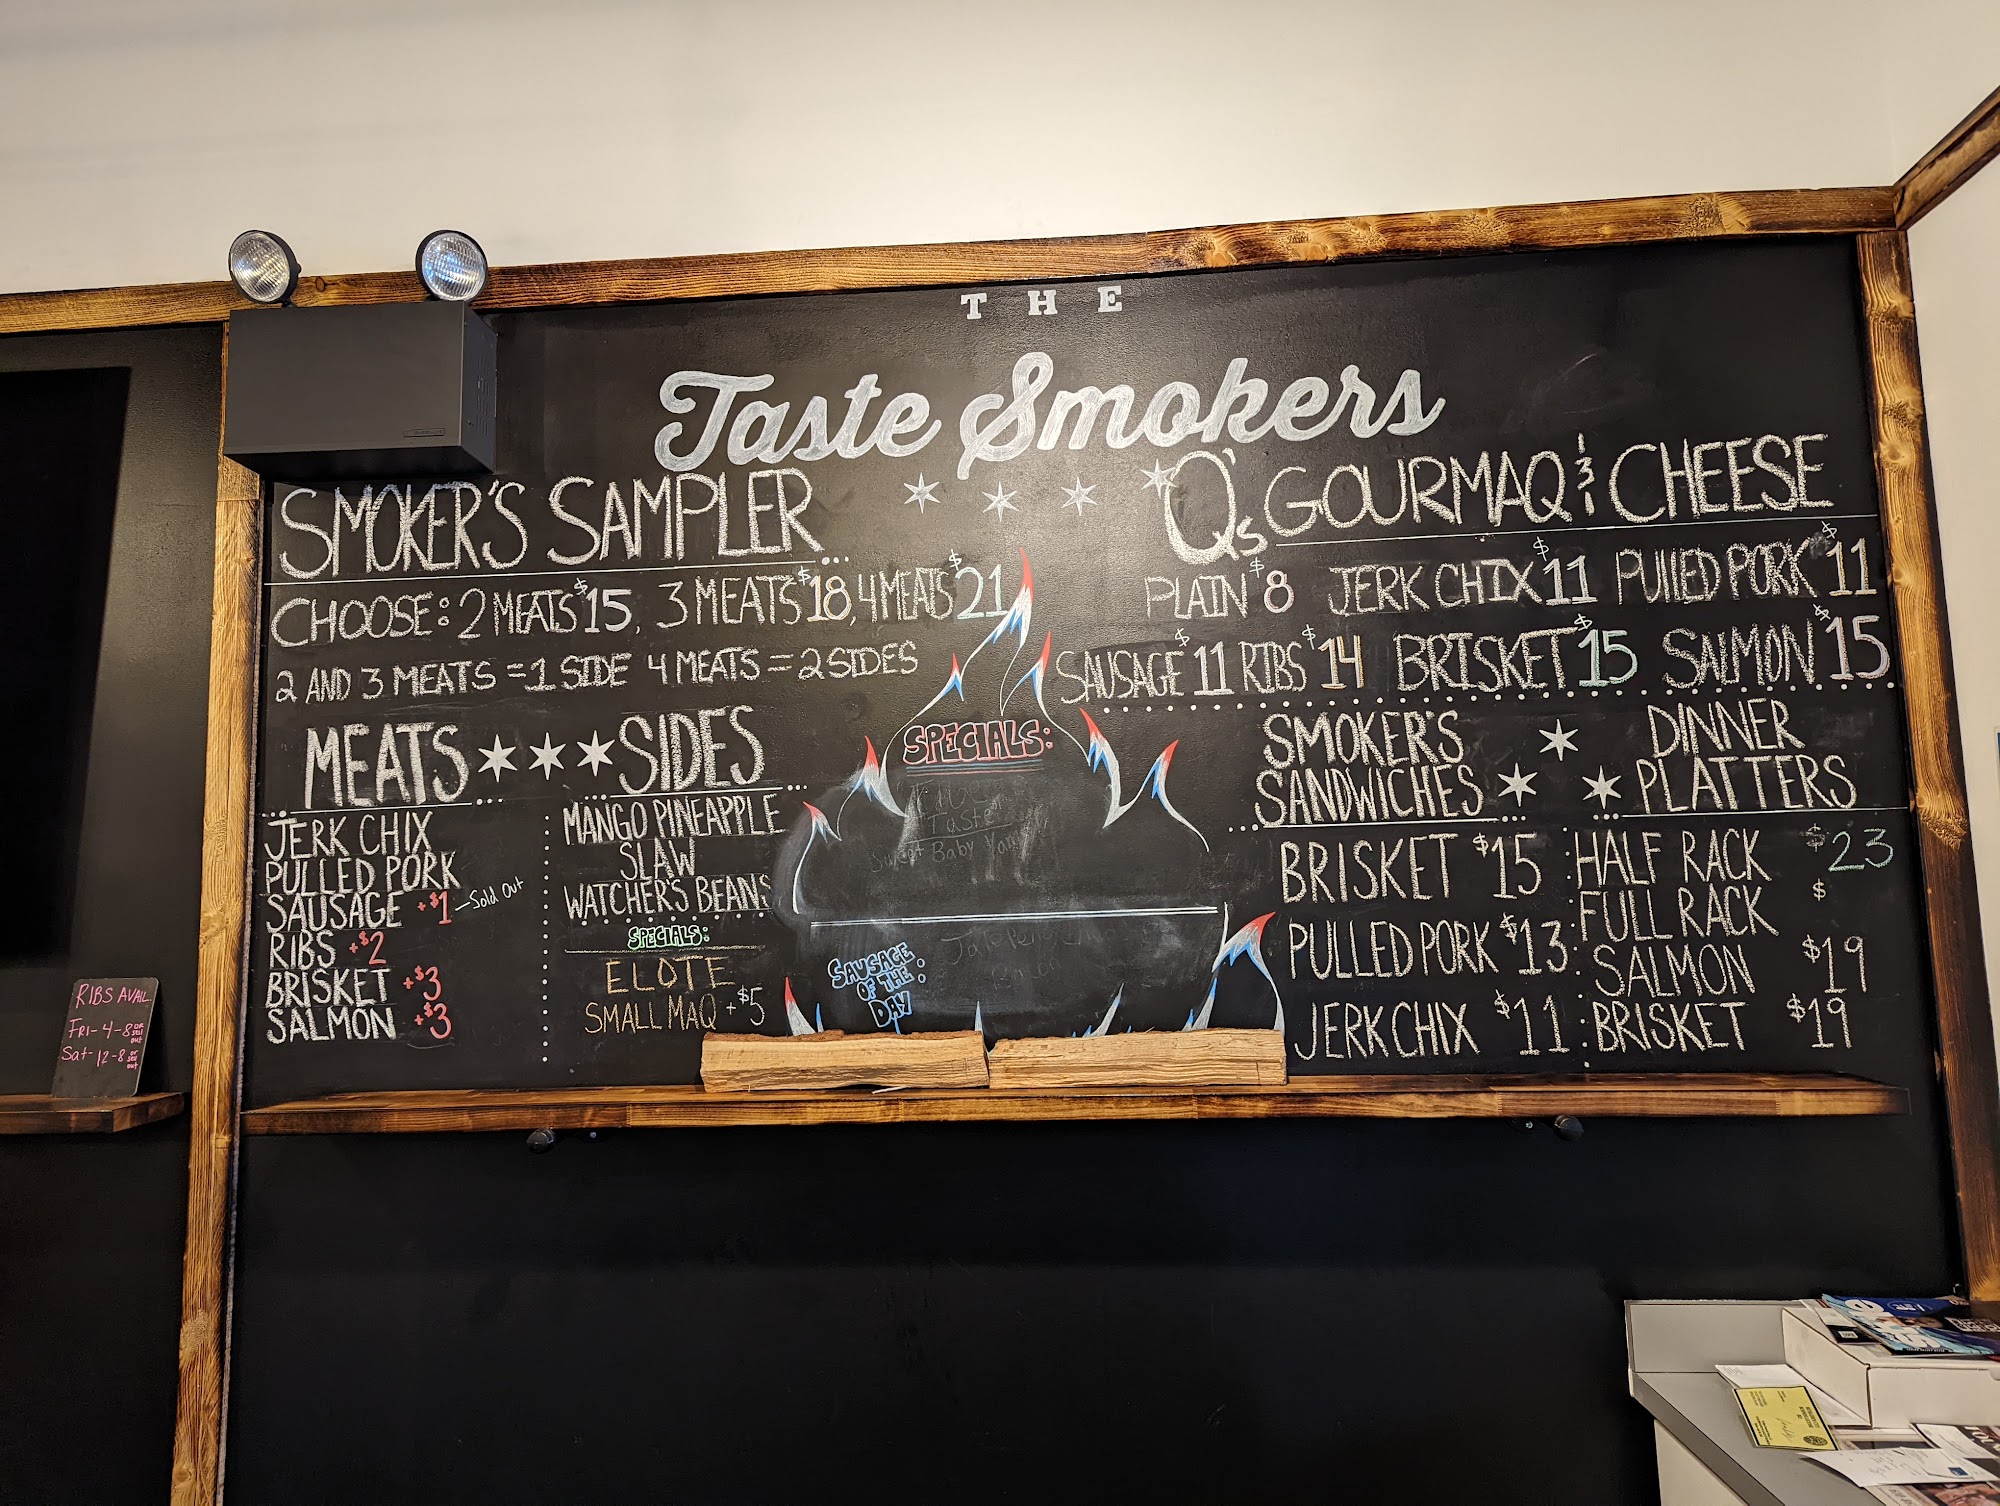 THE
Taste Smokers
SMOKER'S SAMPLER...
CHOOSE: 2 MEATS $15, 3 MEATS $18, 4 MEATS $21
2 AND 3 MEATS = 1 SIDE 4 MEATS = 2 SIDES
MEATS
JERK CHIX
PULLED PORK
SAUSAGE +$1 - Sold Out
RIBS +$2
BRISKET +$3
SALMON +$3
SIDES
MANGO PINEAPPLE
SLAW
WATCHER'S BEANS
SPECIALS:
ELOTE
SMALL MAQ +$5
SPECIALS:
Taste
Sweet Baby
SAUSAGE
OF THE:
DAY
Q's GOURMAQ & CHEESE
PLAIN $8 JERK CHIX $11 PULLED PORK $11
SAUSAGE $11 RIBS $14 BRISKET $15 SALMON $15
SMOKER'S
SANDWICHES
BRISKET $15
PULLED PORK $13
JERK CHIX $11
DINNER
PLATTERS
HALF RACK $23
FULL RACK $
SALMON $19
BRISKET $19
RIBS AVAIL.
FRI- 4-8 or sell out
Sat- 12-8 or sell out